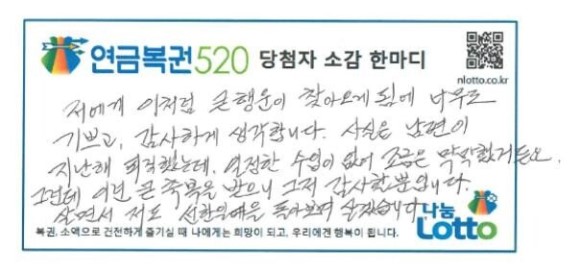 연금복권520 당첨자 소감 한마디
nlotto.co.kr
저에게 이처럼 큰행운이 찾아오게 됨에 너무도
기쁘고, 감사하게 생각합니다. 사실은 남편이
지난해 퇴직했는데, 일정한 수입이 없어 조금은 막막했거든요.
그런데 이런 큰 축복을 받으니 그저 감사할뿐입니다.
살면서 저도 선한 을 돌아보며 살겠습니다
나눔
Lotto
복권, 소액으로 건전하게 즐기실 때 나에게는 희망이 되고, 우리에겐 행복이 됩니다.